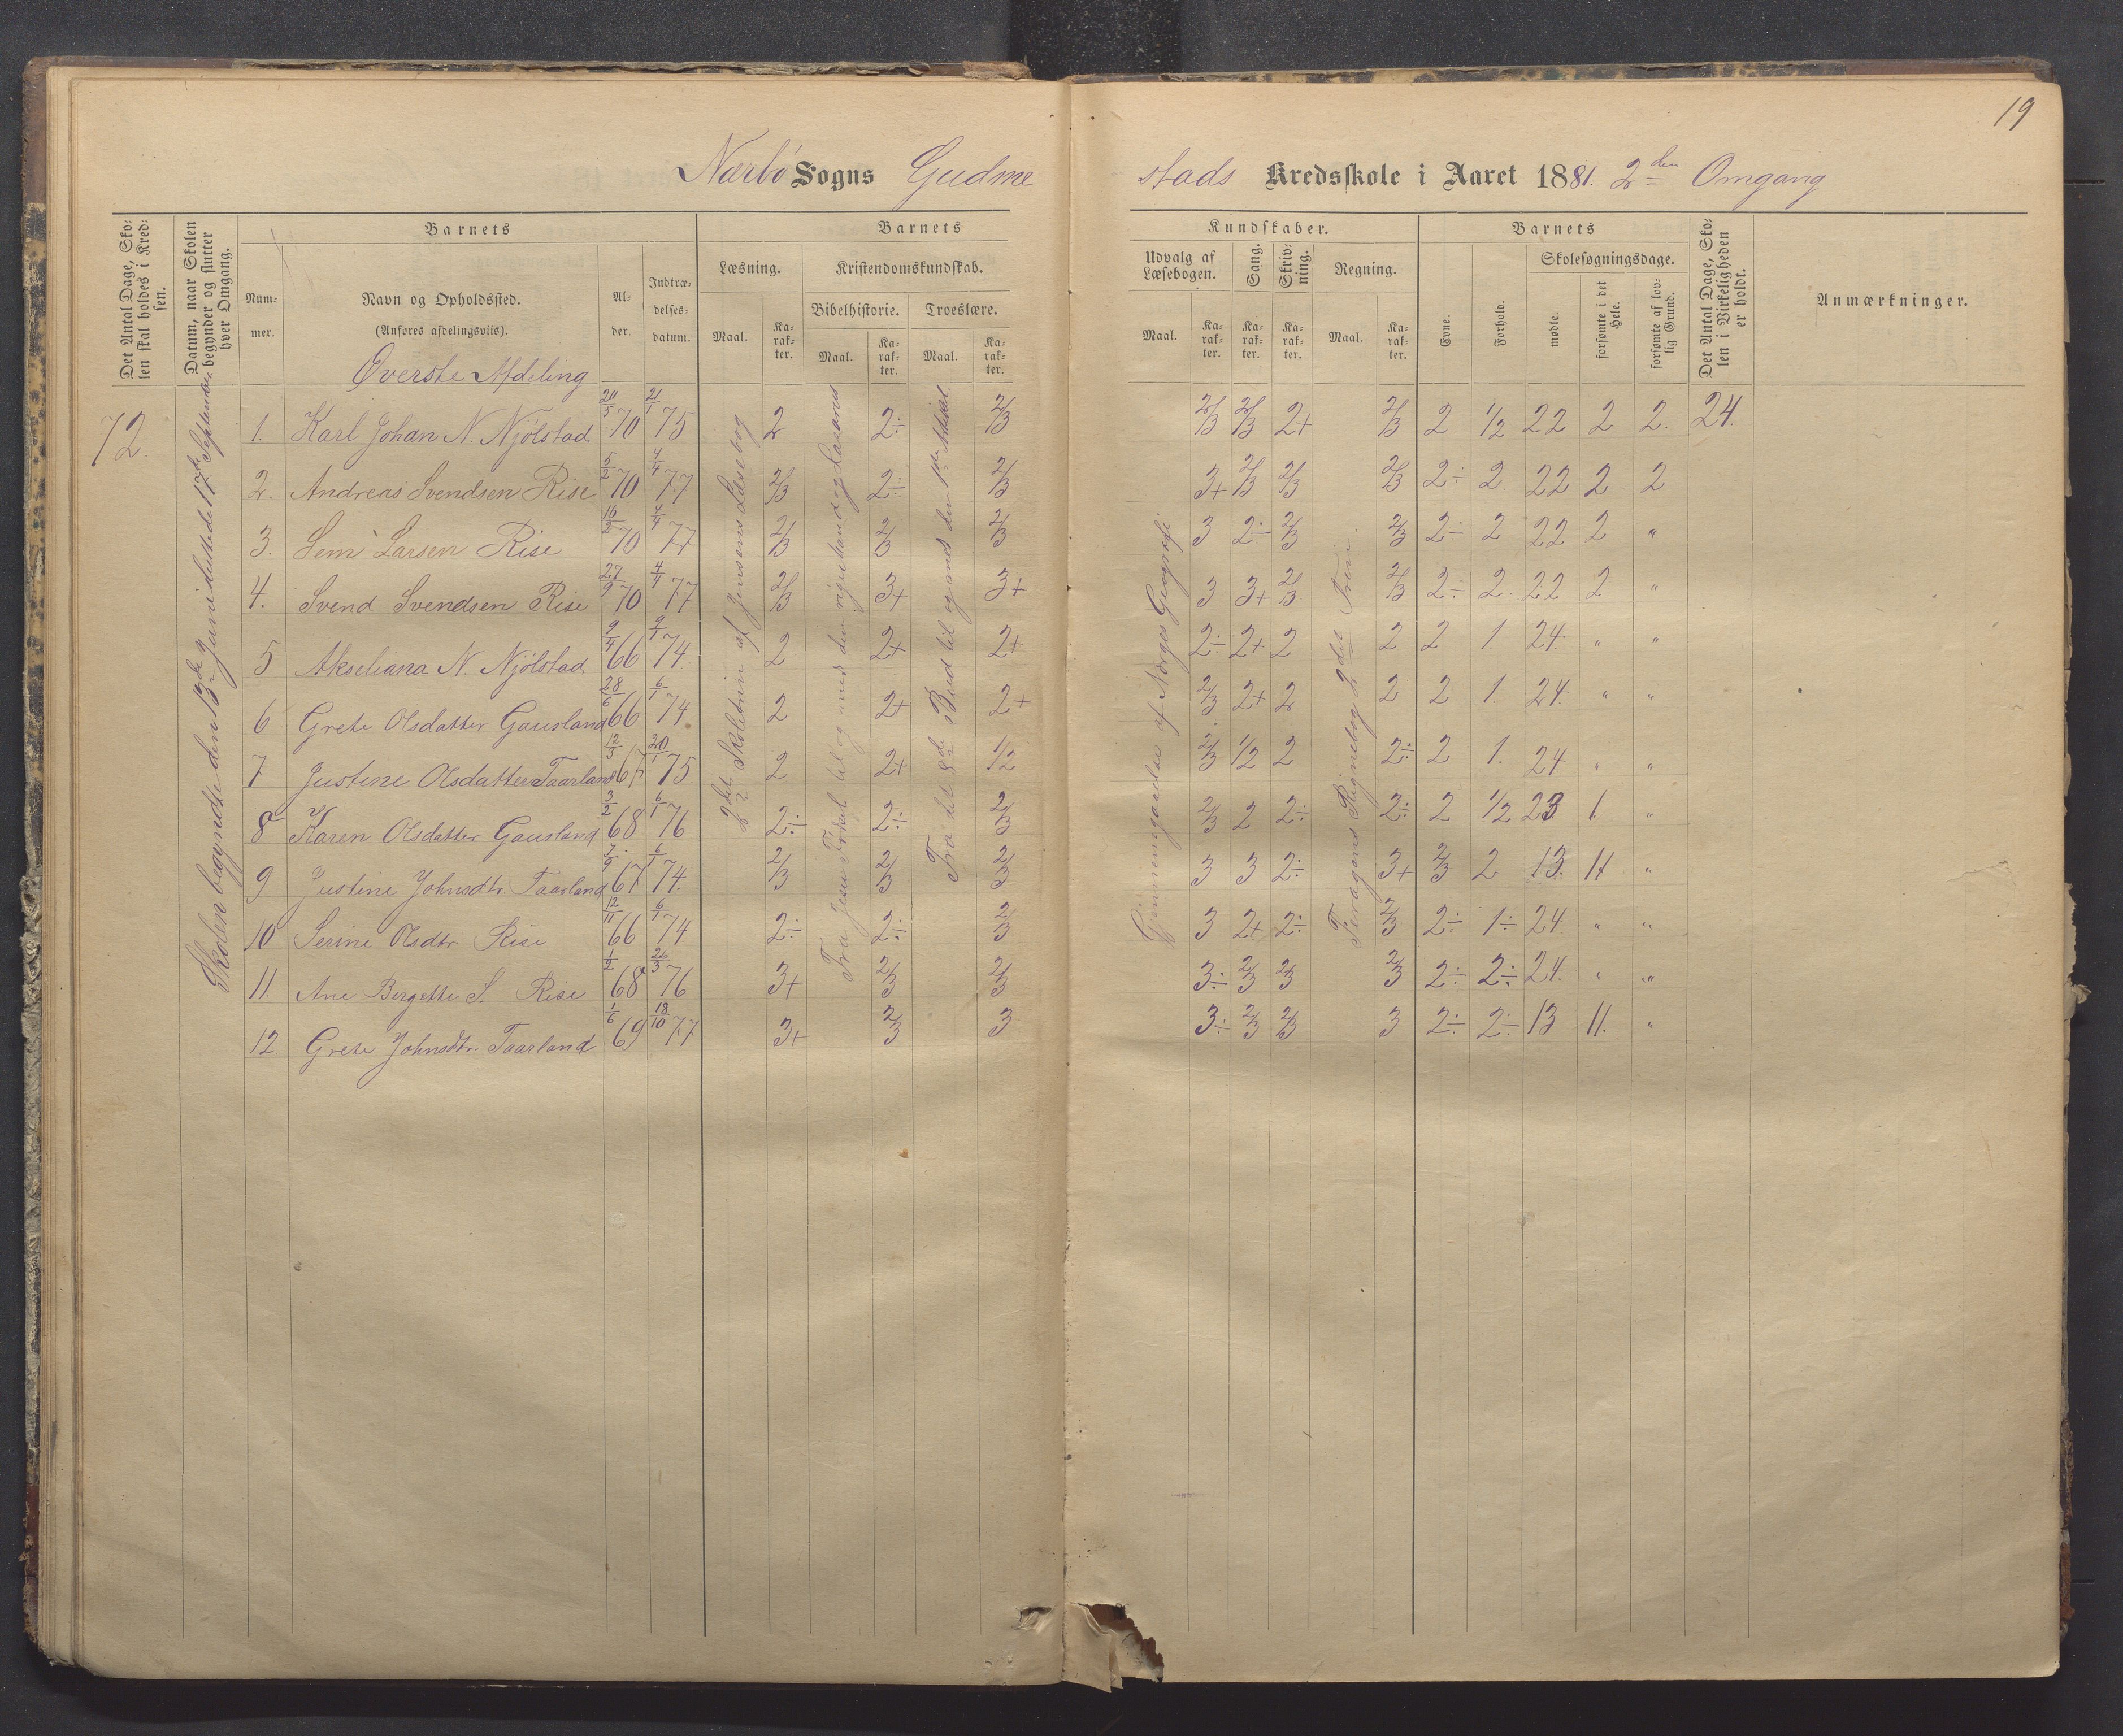 19
Nærbö Sogns Gudme
stads Kredsskole i Aaret 1881. 2den Omgang
Det Antal Dage, Sko-
len skal holdes i Kred-
sen.
Datum, naar Skolen
begynder og slutter
hver Omgang.
Barnets
Num-
mer.
Navn og Opholdssted.
(Anføres afdelingsvis).
Al-
der.
Indtræ-
delses-
datum.
Barnets
Læsning.
Kristendomskundskab.
Bibelhistorie.
Troeslære.
Maal.
Ka-
rak-
ter.
Maal.
Ka-
rak-
ter.
Maal.
Ka-
rak-
ter.
Kundskaber.
Udvalg af
Læsebogen.
Sang.
Skriv-
ning.
Regning.
Maal.
Ka-
rak-
ter.
Ka-
rak-
ter.
Ka-
rak-
ter.
Maal.
Ka-
rak-
ter.
Barnets
Evne.
Forhold.
Skolesøgningsdage.
mødte.
forsømte i det
Hele.
forsømte af lov-
lig Grund.
Det Antal Dage, Sko-
len i Virkeligheden
er holdt.
Anmærkninger.
Øverste Afdeling
72.
Skolen begyndte den 13de Juni sluttede 17de September
2det Skoletrin af Jensens Læsebog
Fra Jesu Fødsel til og med den rige Mand og Lazarus
Fra det 8de Bud til og med den 1ste Artikel
Gjennemgaaelse af Norges Geografi
Geragers Regnebog 2det Trin
1. Karl Johan N. Njölstad 20/5 70 21/1 75 2 2÷ 2/3 2/3 2/3 2+ 2/3 2 1/2 22 2 2. 24.
2. Andreas Svendsen Rise 5/2 70 4/4 77 2/3 2÷ 2/3 3+ 2/3 2/3 2/3 2÷ 2. 22 2 2
3. Sem Larsen Rise 16/2 70 4/4 77 2/3 2/3 2/3 3 2÷ 2/3 2/3 2÷ 2 22 2 "
4. Svend Svendsen Rise 27/9 70 4/4 77 2/3 3+ 3+ 3 3+ 2/3 2/3 2÷ 2. 22 2 "
5 Akseliana N. Njölstad 9/4 66 9/1 74 2 2+ 2+ 2÷ 2+ 2 2 2 1. 24. " "
6 Grete Olsdatter Gausland 28/6 66 6/1 74 2 2+ 2+ 2/3 2+ 2 2 2 1. 24. " "
7 Justine Olsdatter Taarland 12/3 67 20/1 75 2 2+ 1/2 2/3 1/2 2 2÷ 2 1. 24 " "
8 Karen Olsdatter Gausland 3/2 68 6/1 76 2÷ 2÷ 2/3 2/3 2 2÷ 2÷ 2 1/2 23 1 "
9 Justine Johnsdtr. Taarland 7/9 67 6/1 74. 2/3 2/3 2/3 3 3 2÷ 3+ 2/3 2 13. 11 "
10 Serine Olsdtr Rise 12/11 66 6/1 74 2÷ 2÷ 2/3 3 2+ 2÷ 2/3 2÷ 1÷ 24 " "
11. Ane Bergette S. Rise 1/2 68 26/3 76 3+ 2/3 2/3 3÷ 2/3 2/3 2/3 2÷ 2÷ 24. " "
12. Grete Johnsdtr. Taarland 1/6 69 18/10 77 3+ 2/3 3 3÷ 2/3 2/3 3 2÷ 2÷ 13 11. "